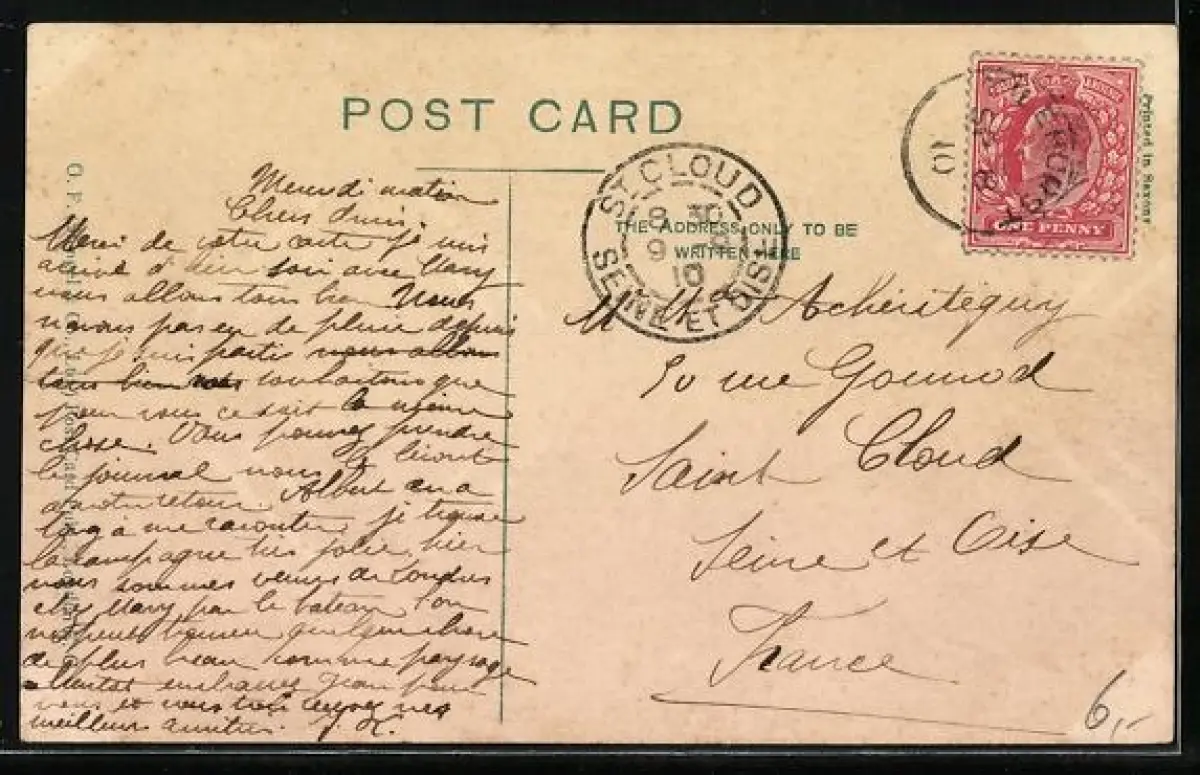 POST CARD
Printed in Saxony
ONE PENNY
10
ST CLOUD
8 30
9
10
SEINE ET OISE
THE ADDRESS ONLY TO BE
WRITTEN HERE
Mercredi matin
Chers Amis.
Merci de votre carte je suis
arrivé hier soir avec Mary
nous allons tous bien Nous
n'avons pas eu de pluie depuis
que je suis partie nous allons
tous bien nous souhaitons que
pour vous ce soit la même
chose. Vous pouvez prendre
le journal nous le lirons
à notre retour. Albert en a
long à me raconter je trouve
la campagne très jolie, hier
nous sommes venus de Londres
chez Mary par le bateau l'on
ne peut trouver quelque chose
de plus beau comme paysage
embrassez Jean pour
nous et vous
meilleurs amitiés.
M Md Achéritéguy
rue Gounod
Saint Cloud
Seine et Oise
France
6,-